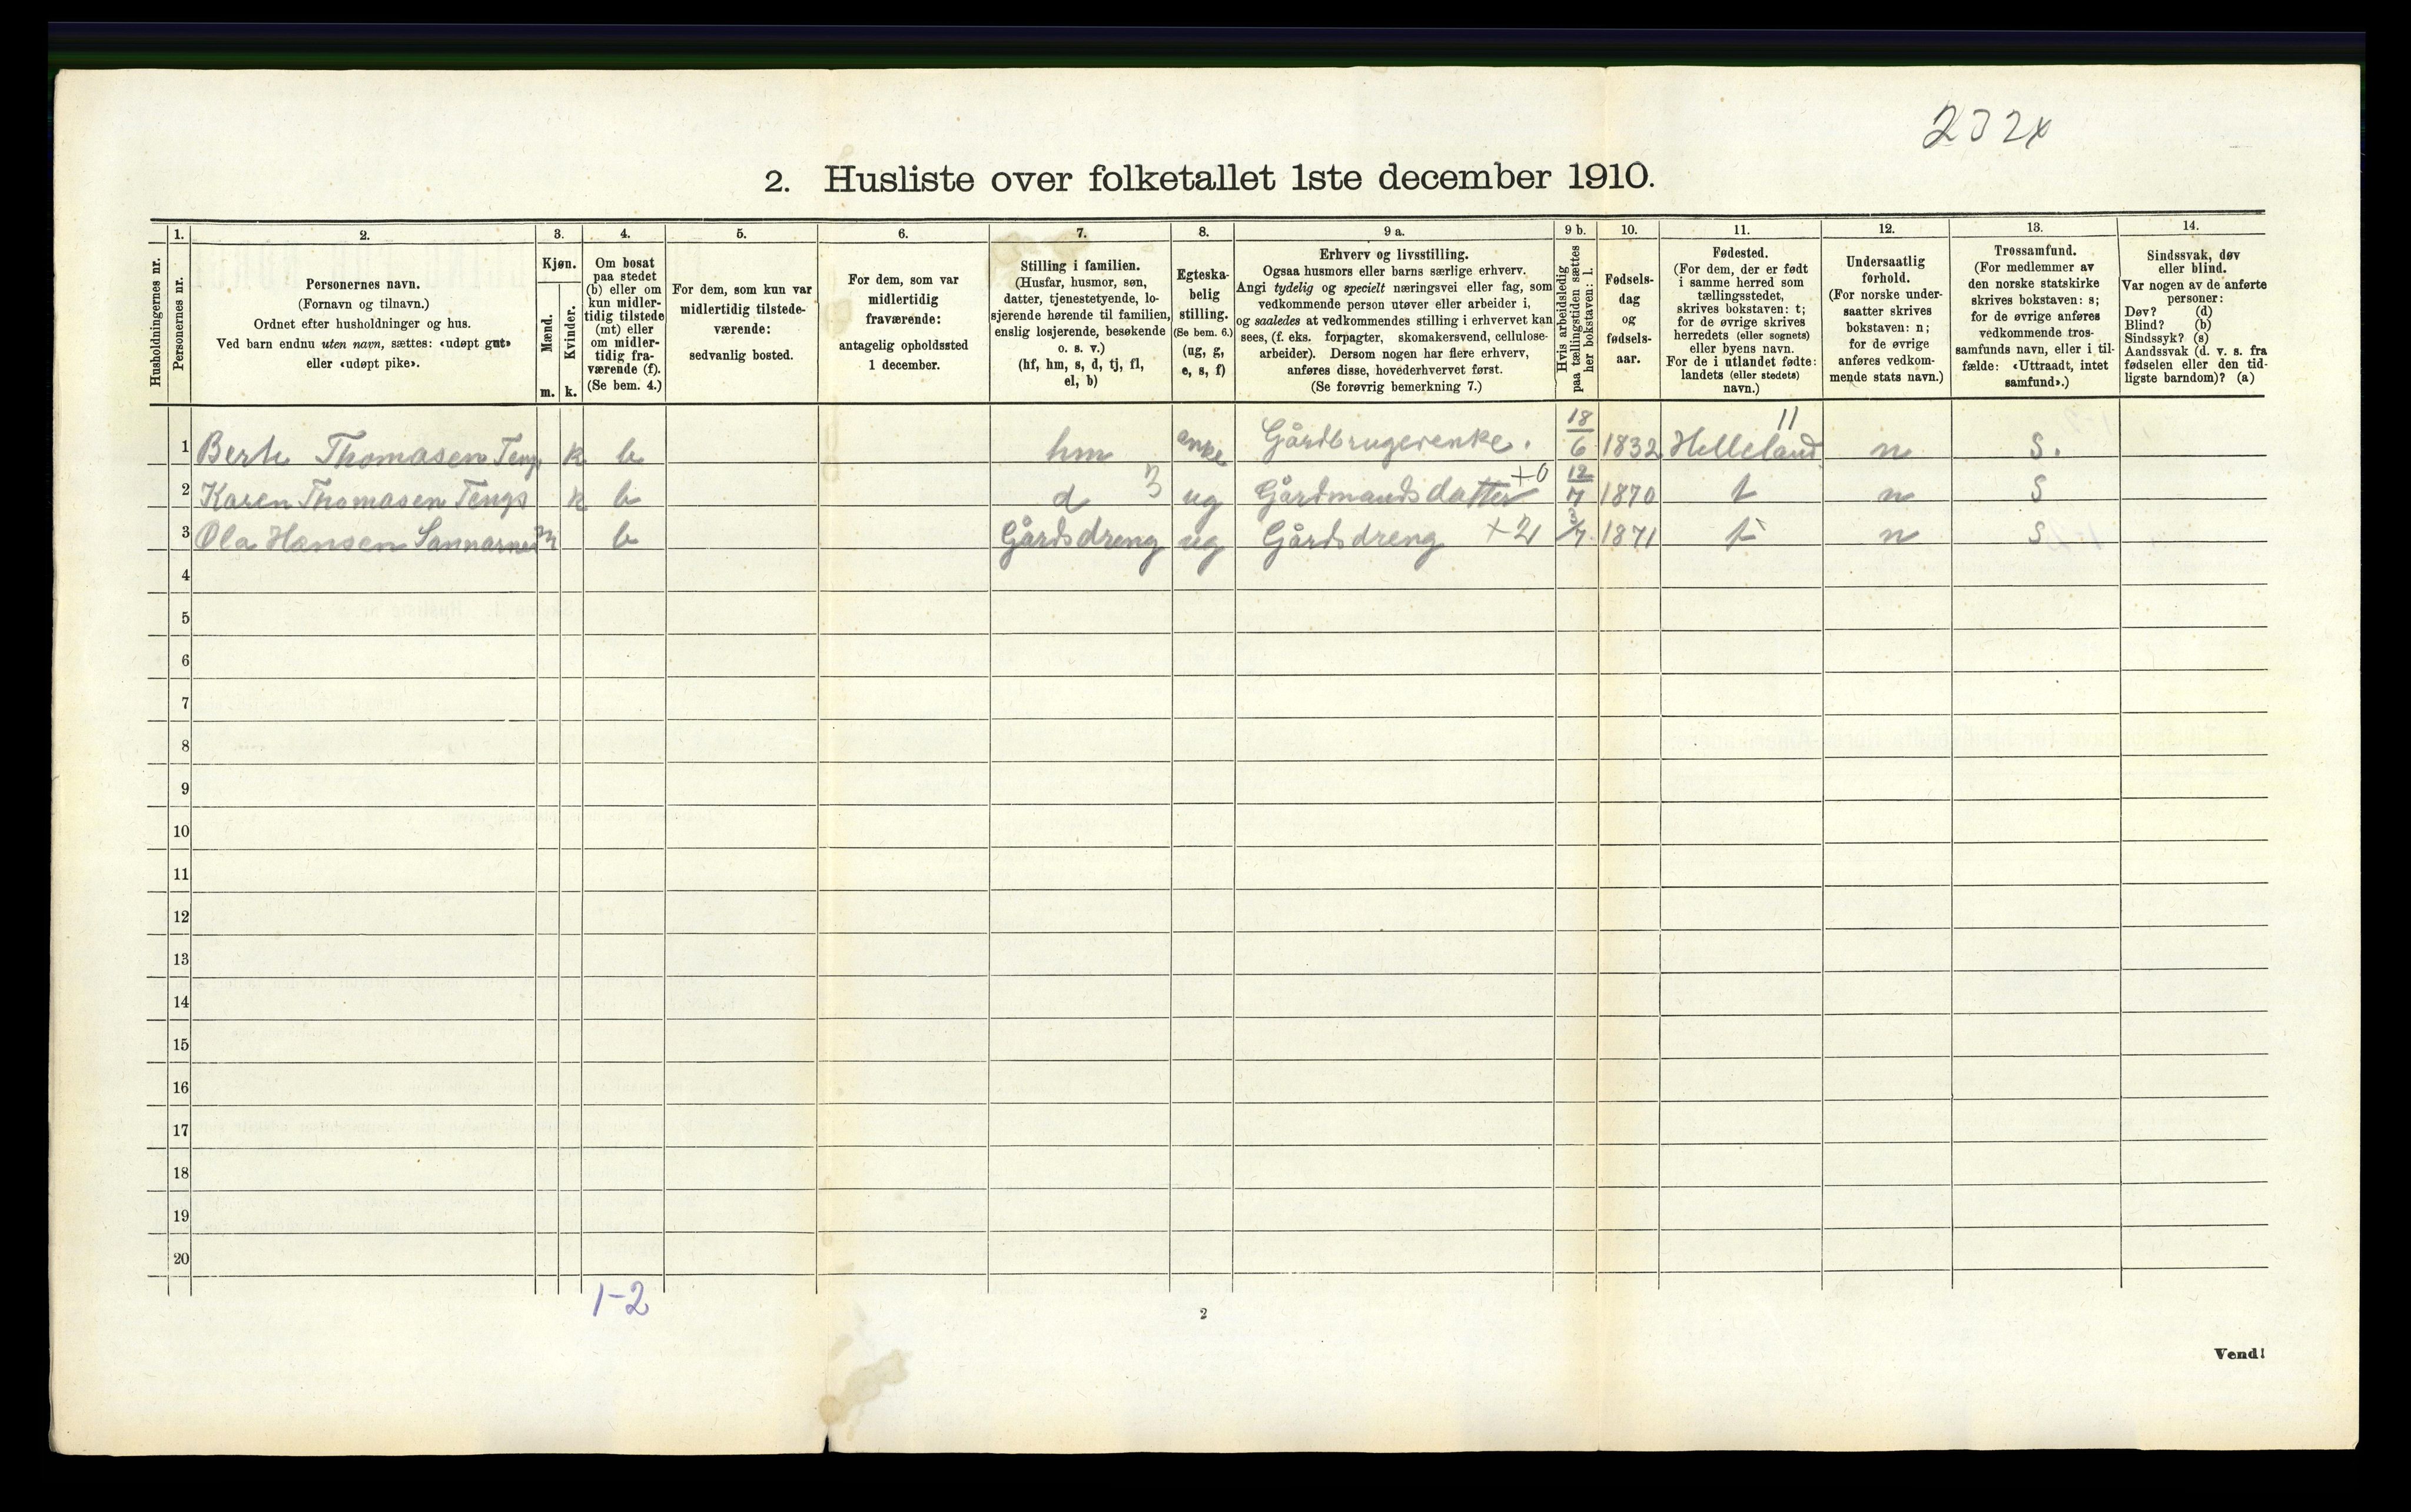 232x
2. Husliste over folketallet 1ste december 1910.
Husholdningernes nr.
1.
Personernes nr.
2.
Personernes navn.
(Fornavn og tilnavn.)
Ordnet efter husholdninger og hus.
Ved barn endnu uten navn, sættes: «udøpt gut»
eller «udøpt pike».
3.
Kjøn.
Mænd.
Kvinder.
m. k.
4.
Om bosat
paa stedet
(b) eller om
kun midler-
tidig tilstede
(mt) eller
om midler-
tidig fra-
værende (f).
(Se bem. 4.)
5.
For dem, som kun var
midlertidig tilstede-
værende:
sedvanlig bosted.
6.
For dem, som var
midlertidig
fraværende:
antagelig opholdssted
1 december.
7.
Stilling i familien.
(Husfar, husmor, søn,
datter, tjenestetyende, lo-
sjerende hørende til familien,
enslig losjerende, besøkende
o. s. v.)
(hf, hm, s, d, tj, fl,
el, b)
8.
Egteska-
belig
stilling.
(Se bem. 6.)
(ug, g,
e, s, f)
9 a.
Erhverv og livsstilling.
Ogsaa husmors eller barns særlige erhverv.
Angi tydelig og specielt næringsvei eller fag, som
vedkommende person utøver eller arbeider i,
og saaledes at vedkommendes stilling i erhvervet kan
sees, (f. eks. forpagter, skomakersvend, cellulose-
arbeider). Dersom nogen har flere erhverv,
anføres disse, hovederhvervet først.
(Se forøvrig bemerkning 7.)
9 b.
Hvis arbeidsledig
paa tællingstiden sættes
her bokstaven: l.
10.
Fødsels-
dag
og
fødsels-
aar.
11.
Fødested.
(For dem, der er født
i samme herred som
tællingsstedet,
skrives bokstaven: t;
for de øvrige skrives
herredets (eller sognets)
eller byens navn.
For de i utlandet fødte:
landets (eller stedets)
navn.)
12.
Undersaatlig
forhold.
(For norske under-
saatter skrives
bokstaven: n;
for de øvrige
anføres vedkom-
mende stats navn.)
13.
Trossamfund.
(For medlemmer av
den norske statskirke
skrives bokstaven: s;
for de øvrige anføres
vedkommende tros-
samfunds navn, eller i til-
fælde: «Uttraadt, intet
samfund».)
14.
Sindssvak, døv
eller blind.
Var nogen av de anførte
personer:
Døv? (d)
Blind? (b)
Sindssyk? (s)
Aandssvak (d. v. s. fra
fødselen eller den tid-
ligste barndom)? (a)
1 Berte Thomasen Tengs k b hm enke Gårdbrugerenke. 18/6 1832 Helleland 11 n S.
2 Karen Thomasen Tengs k b d 3 ug Gårdmandsdatter +0 12/7 1870 t n S
3 Ola Hansen Sannarnes m b Gårdsdreng ug Gårdsdreng +21 3/7 1871 t n S
4
5
6
7
8
9
10
11
12
13
14
15
16
17
18
19
20
1-2
2
Vend!